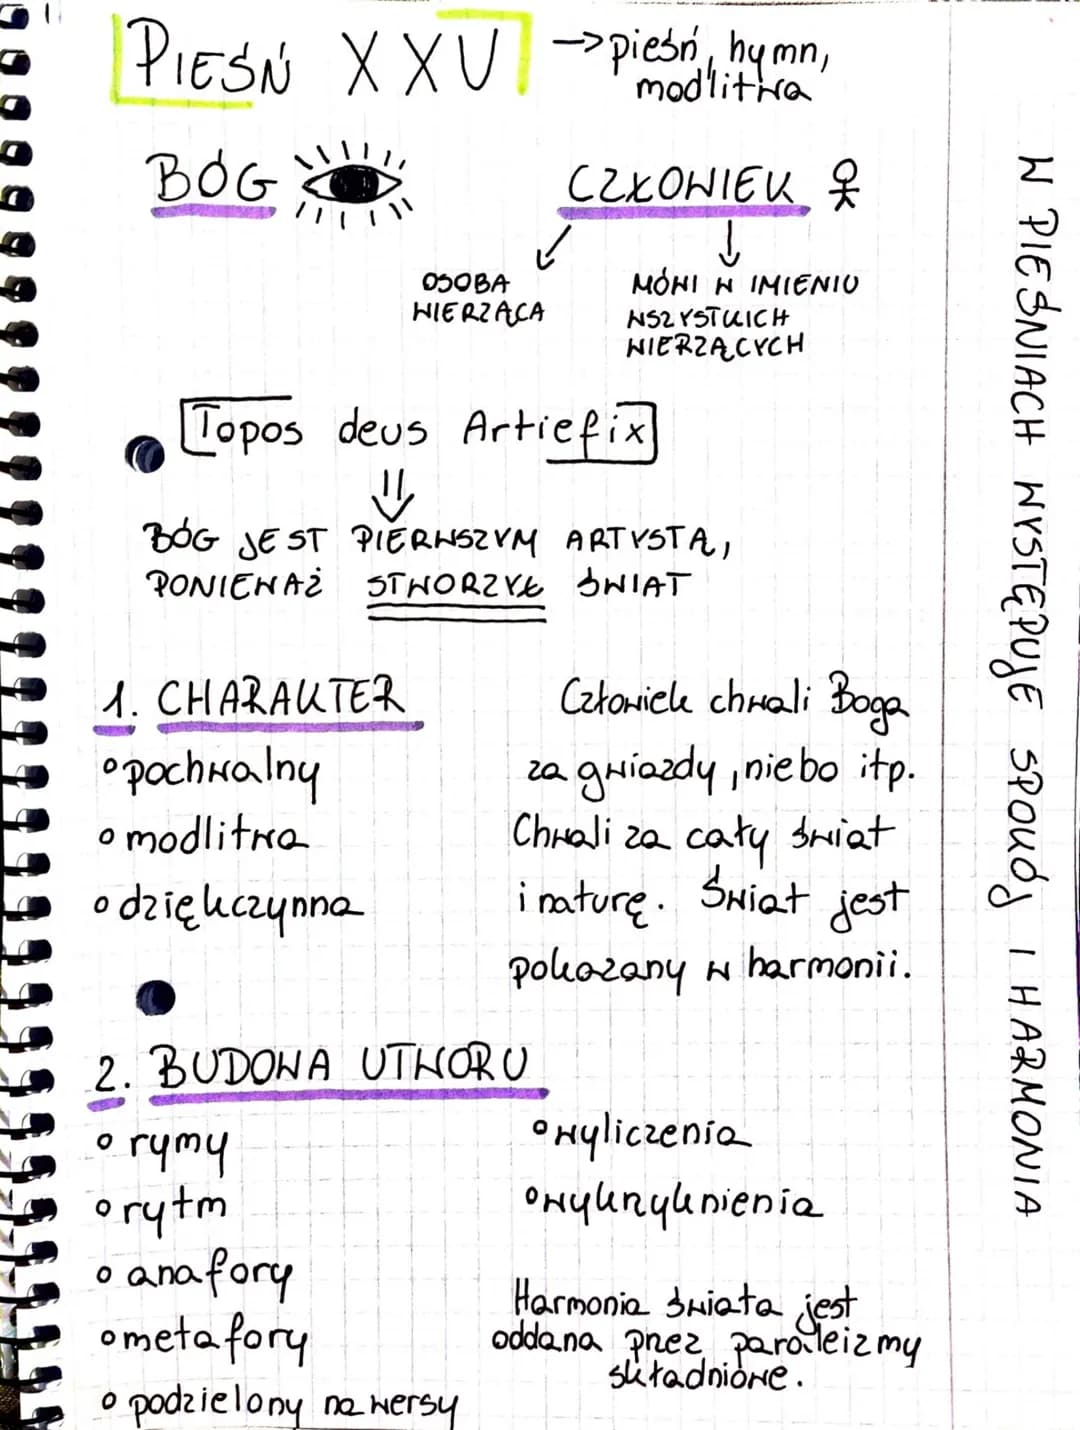 PIEŚŃ XXV → pieśń, hymn,
modlitwa
BÓG
CZŁOWIEK
OSOBA
WIERZĄCA
MÓWI W IMIENIU
WSZYSTKICH
WIERZĄCYCH
Topos deus Artiefix
BÓG JEST PIERWSZYM ARTYSTĄ,
PONIEWAŻ STWORZYŁ ŚWIAT
1. CHARAKTER
pochwalny
modlitwa
dziękczynna
Człowiek chwali Boga
za gwiazdy, niebo itp.
Chwali za cały świat
i naturę. Świat jest
pokazany w harmonii.
2. BUDOWA UTWORU
rymy
rytm
anafory
metafory
podzielony na wersy
wyliczenia
wykrzyknienia
Harmonia świata jest
oddana przez paraleizmy
składniowe.
W PIEŚNIACH WYSTĘPUJE SPOKÓJ I HARMONIA